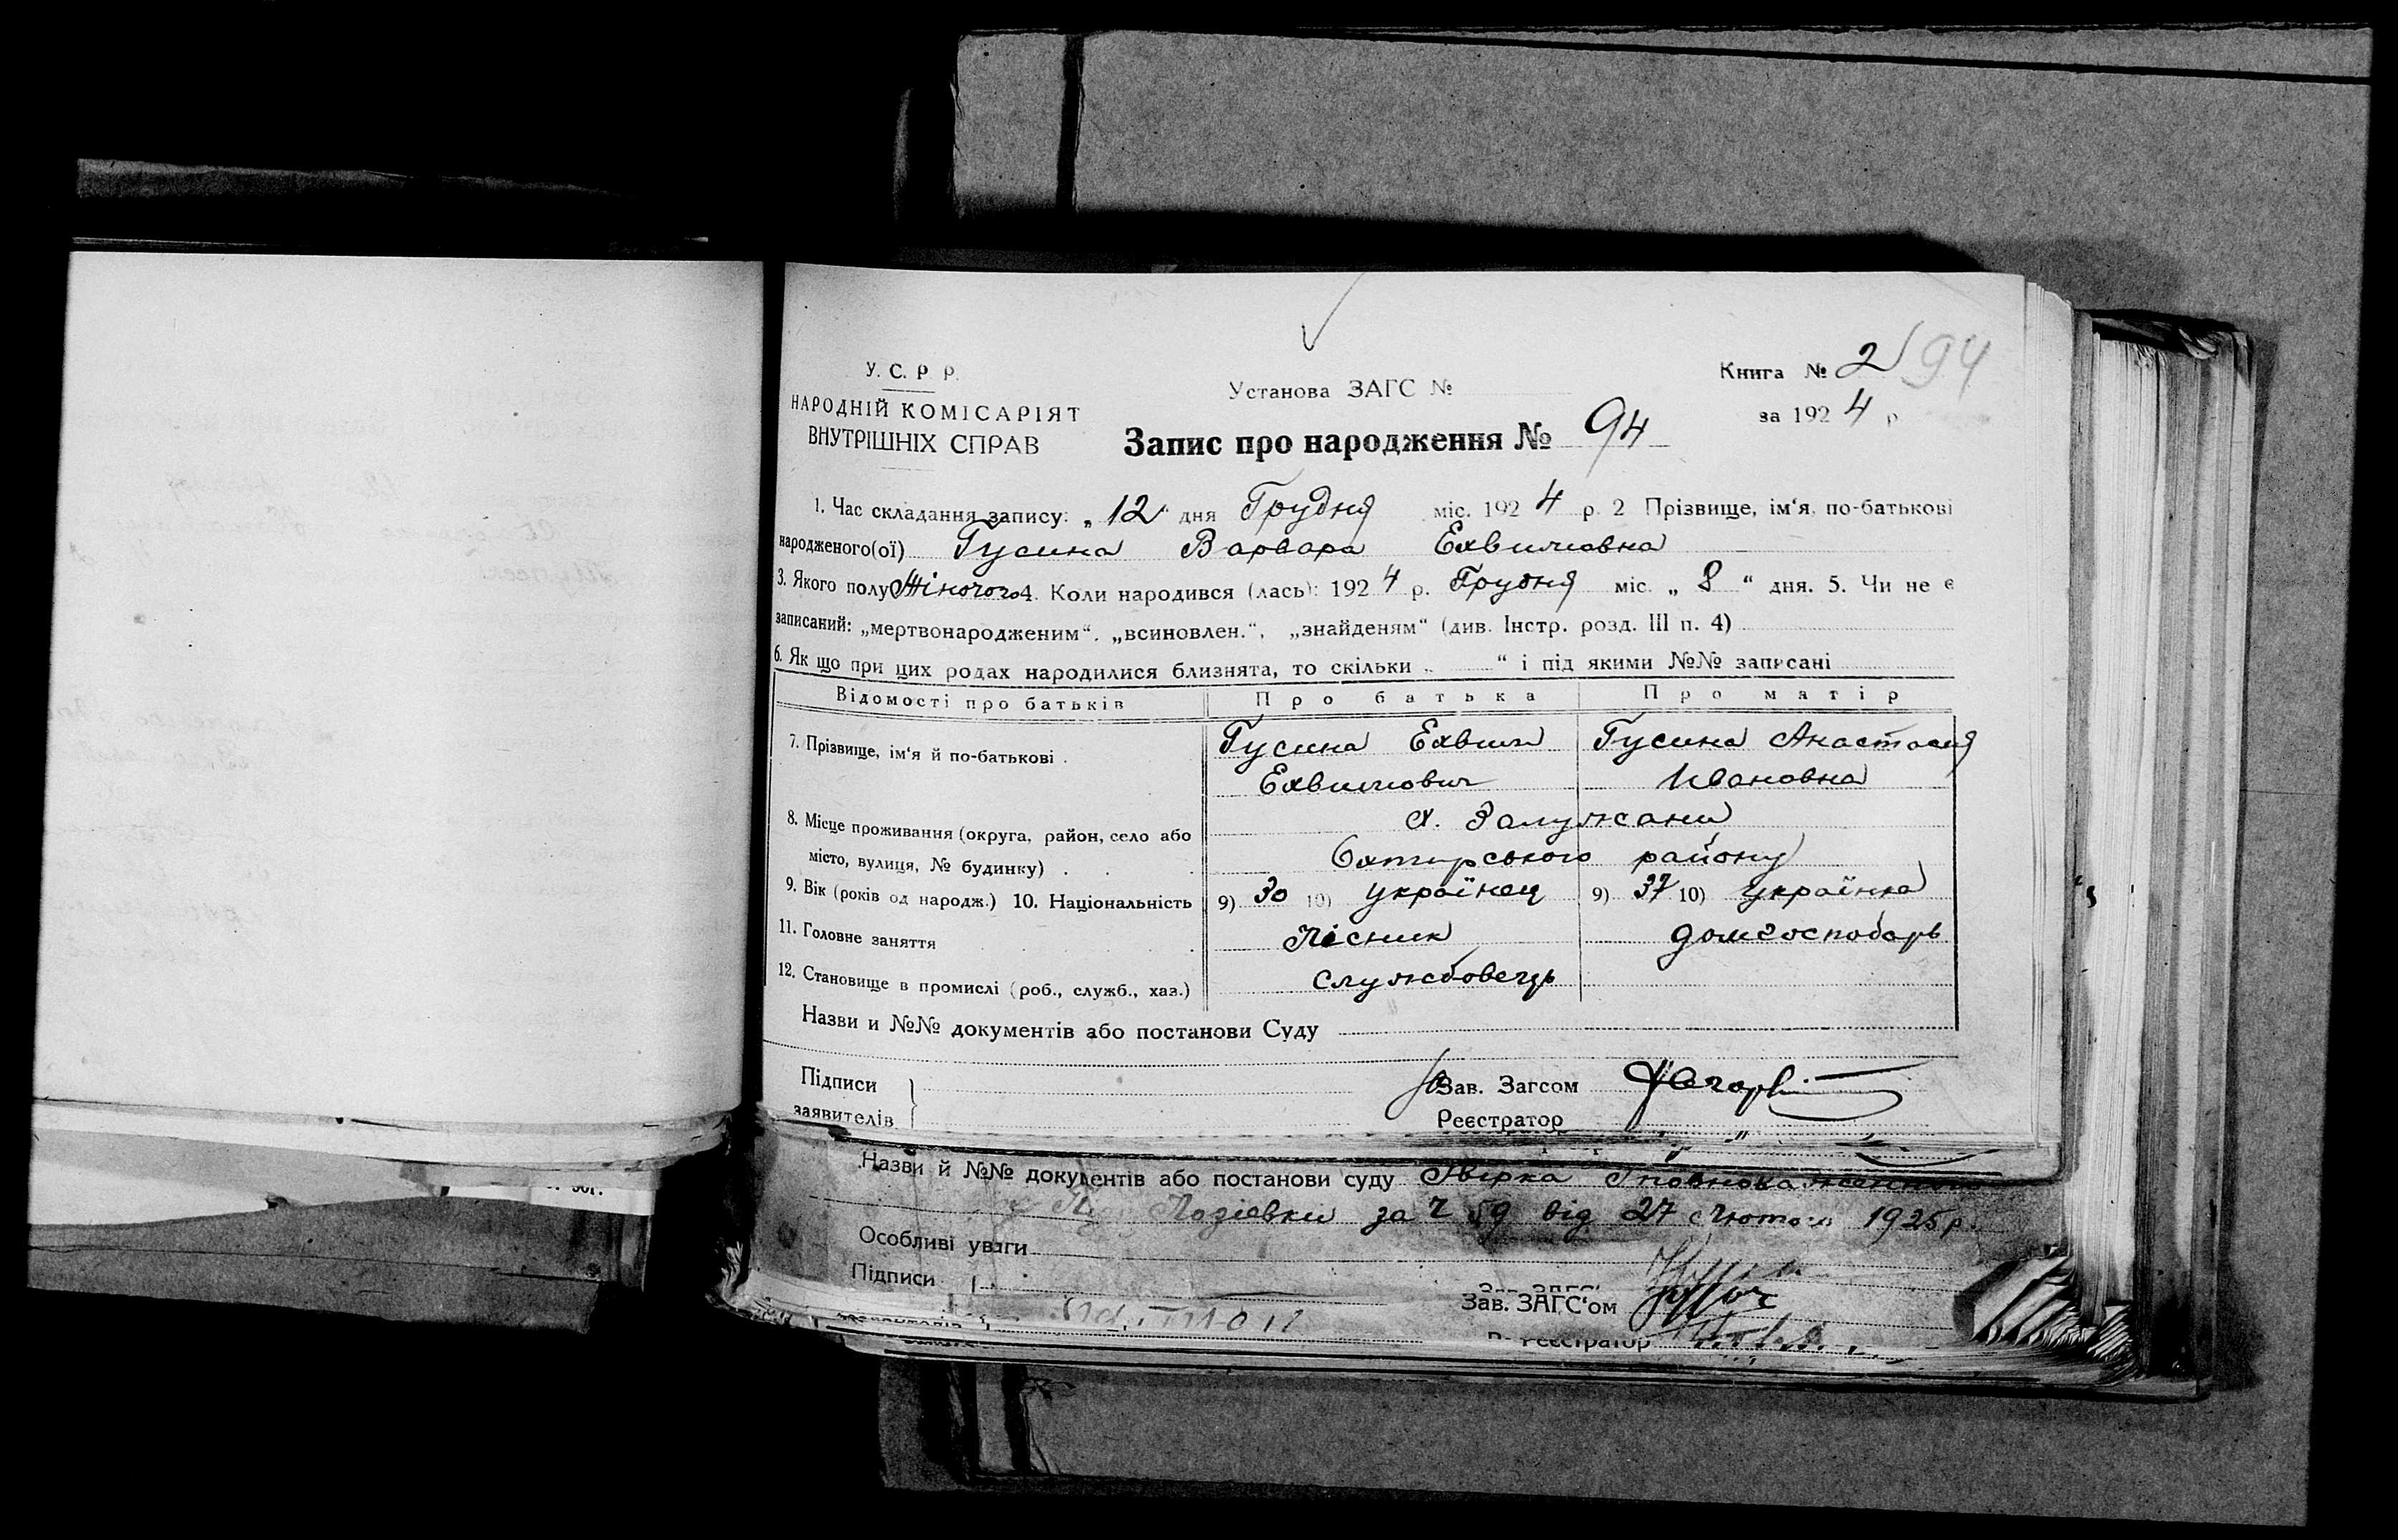 У. С. Р. Р.
НАРОДНІЙ КОМІСАРІЯТ
ВНУТРІШНІХ СПРАВ
Установа ЗАГС №
Запис про народження № 94
Книга № 2 94
за 1924 р
1. Час складання запису: „12" дня Грудня міс. 1924 р. 2 Прізвище, ім'я, по-батькові
народженого(ої) Гусина Варвара Ехвимовна
3. Якого полу Жіночого 4. Коли народився (лась): 1924 р. Грудня міс. „8" дня. 5. Чи не є
записаний: „мертвонародженим", „всиновлен.", „знайденям" (див. Інстр. розд. III п. 4)
6. Як що при цих родах народилися близнята, то скільки „ " і під якими №№ записані
Відомості про батьків Про батька Про матір
7. Прізвище, ім'я й по-батькові . Гусина Ехвим Гусина Анастасия
Ехвимович Ивановна
8. Місце проживання (округа, район, село або х. Залужани
місто, вулиця, № будинку) . . . Охтирського району
9. Вік (років од народж.) 10. Національність 9) 30 10) українец 9) 37 10) українка
11. Головне заняття . Лісник домгосподарь
12. Становище в промислі (роб., служб., хаз.) службовець
Назви и №№ документів або постанови Суду
Підписи
заявителів
Зав. Загсом
Реєстратор
Назви й №№ документів або постанови суду
за 59 від 27 Лютого 1925 р.
Особливі уваги
Підписи
Зав. ЗАГС'ом
Реєстратор